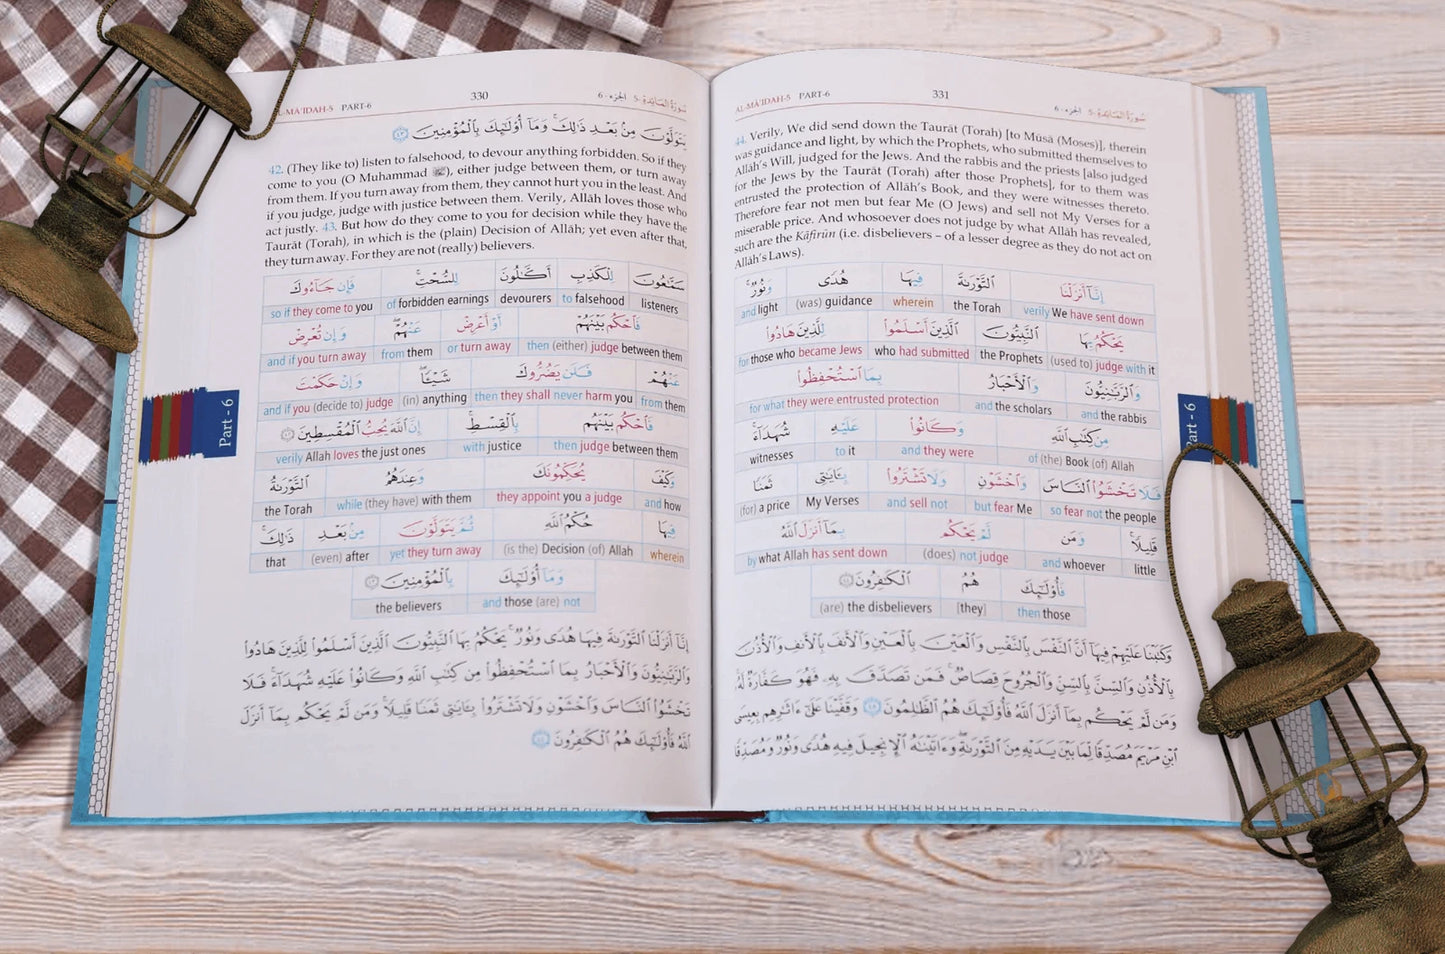 AL-MĀ'IDAH-5 PART-6
330
سورة المائدة-5 الجزء-6
يَتَوَلَّوْنَ مِنْ بَعْدِ ذَٰلِكَ ۚ وَمَآ أُو۟لَـٰٓئِكَ بِٱلْمُؤْمِنِينَ ٤٣
42. (They like to) listen to falsehood, to devour anything forbidden. So if they
come to you (O Muhammad ﷺ), either judge between them, or turn away
from them. If you turn away from them, they cannot hurt you in the least. And
if you judge, judge with justice between them. Verily, Allāh loves those who
act justly. 43. But how do they come to you for decision while they have the
Taurāt (Torah), in which is the (plain) Decision of Allāh; yet even after that,
they turn away. For they are not (really) believers.
سَمَّـٰعُونَ لِلْكَذِبِ أَكَّـٰلُونَ لِلسُّحْتِ ۚ فَإِن جَآءُوكَ
so if they come to you of forbidden earnings devourers to falsehood listeners
فَٱحْكُم بَيْنَهُمْ أَوْ أَعْرِضْ عَنْهُمْ ۖ وَإِن تُعْرِضْ
and if you turn away from them or turn away then (either) judge between them
عَنْهُمْ فَلَن يَضُرُّوكَ شَيْـًٔا ۖ وَإِنْ حَكَمْتَ
and if you (decide to) judge (in) anything then they shall never harm you from them
فَٱحْكُم بَيْنَهُم بِٱلْقِسْطِ ۚ إِنَّ ٱللَّهَ يُحِبُّ ٱلْمُقْسِطِينَ ٤٢
verily Allah loves the just ones with justice then judge between them
وَكَيْفَ يُحَكِّمُونَكَ وَعِندَهُمُ ٱلتَّوْرَىٰةُ
the Torah while (they have) with them they appoint you a judge and how
فِيهَا حُكْمُ ٱللَّهِ ثُمَّ يَتَوَلَّوْنَ مِنۢ بَعْدِ ذَٰلِكَ ۚ
that (even) after yet they turn away (is the) Decision (of) Allah wherein
وَمَآ أُو۟لَـٰٓئِكَ بِٱلْمُؤْمِنِينَ ٤٣
the believers and those (are) not
إِنَّآ أَنزَلْنَا ٱلتَّوْرَىٰةَ فِيهَا هُدًى وَنُورٌ ۚ يَحْكُمُ بِهَا ٱلنَّبِيُّونَ ٱلَّذِينَ أَسْلَمُوا۟ لِلَّذِينَ هَادُوا۟
وَٱلرَّبَّـٰنِيُّونَ وَٱلْأَحْبَارُ بِمَا ٱسْتُحْفِظُوا۟ مِن كِتَـٰبِ ٱللَّهِ وَكَانُوا۟ عَلَيْهِ شُهَدَآءَ ۚ فَلَا
تَخْشَوُا۟ ٱلنَّاسَ وَٱخْشَوْنِ وَلَا تَشْتَرُوا۟ بِـَٔايَـٰتِى ثَمَنًا قَلِيلًا ۚ وَمَن لَّمْ يَحْكُم بِمَآ أَنزَلَ
ٱللَّهُ فَأُو۟لَـٰٓئِكَ هُمُ ٱلْكَـٰفِرُونَ ٤٤
Part - 6
AL-MĀ'IDAH-5 PART-6
331
سورة المائدة-5 الجزء-6
44. Verily, We did send down the Taurāt (Torah) [to Mūsā (Moses)], therein
was guidance and light, by which the Prophets, who submitted themselves to
Allāh's Will, judged for the Jews. And the rabbis and the priests [also judged
for the Jews by the Taurāt (Torah) after those Prophets], for to them was
entrusted the protection of Allāh's Book, and they were witnesses thereto.
Therefore fear not men but fear Me (O Jews) and sell not My Verses for a
miserable price. And whosoever does not judge by what Allāh has revealed,
such are the Kāfirūn (i.e. disbelievers – of a lesser degree as they do not act on
Allāh's Laws).
إِنَّآ أَنزَلْنَا ٱلتَّوْرَىٰةَ فِيهَا هُدًى وَنُورٌ ۚ
and light (was) guidance wherein the Torah verily We have sent down
يَحْكُمُ بِهَا ٱلنَّبِيُّونَ ٱلَّذِينَ أَسْلَمُوا۟ لِلَّذِينَ هَادُوا۟
for those who became Jews who had submitted the Prophets (used to) judge with it
وَٱلرَّبَّـٰنِيُّونَ وَٱلْأَحْبَارُ بِمَا ٱسْتُحْفِظُوا۟
for what they were entrusted protection and the scholars and the rabbis
مِن كِتَـٰبِ ٱللَّهِ وَكَانُوا۟ عَلَيْهِ شُهَدَآءَ ۚ
witnesses to it and they were of (the) Book (of) Allah
فَلَا تَخْشَوُا۟ ٱلنَّاسَ وَٱخْشَوْنِ وَلَا تَشْتَرُوا۟ بِـَٔايَـٰتِى ثَمَنًا
(for) a price My Verses and sell not but fear Me so fear not the people
قَلِيلًا ۚ وَمَن لَّمْ يَحْكُم بِمَآ أَنزَلَ ٱللَّهُ
by what Allah has sent down (does) not judge and whoever little
فَأُو۟لَـٰٓئِكَ هُمُ ٱلْكَـٰفِرُونَ ٤٤
(are) the disbelievers [they] then those
وَكَتَبْنَا عَلَيْهِمْ فِيهَآ أَنَّ ٱلنَّفْسَ بِٱلنَّفْسِ وَٱلْعَيْنَ بِٱلْعَيْنِ وَٱلْأَنفَ بِٱلْأَنفِ وَٱلْأُذُنَ
بِٱلْأُذُنِ وَٱلسِّنَّ بِٱلسِّنِّ وَٱلْجُرُوحَ قِصَاصٌ ۚ فَمَن تَصَدَّقَ بِهِۦ فَهُوَ كَفَّارَةٌ لَّهُۥ ۚ
وَمَن لَّمْ يَحْكُم بِمَآ أَنزَلَ ٱللَّهُ فَأُو۟لَـٰٓئِكَ هُمُ ٱلظَّـٰلِمُونَ ٤٥ وَقَفَّيْنَا عَلَىٰٓ ءَاثَـٰرِهِم بِعِيسَى
ٱبْنِ مَرْيَمَ مُصَدِّقًا لِّمَا بَيْنَ يَدَيْهِ مِنَ ٱلتَّوْرَىٰةِ ۖ وَءَاتَيْنَـٰهُ ٱلْإِنجِيلَ فِيهِ هُدًى وَنُورٌ وَمُصَدِّقًا
Part - 6